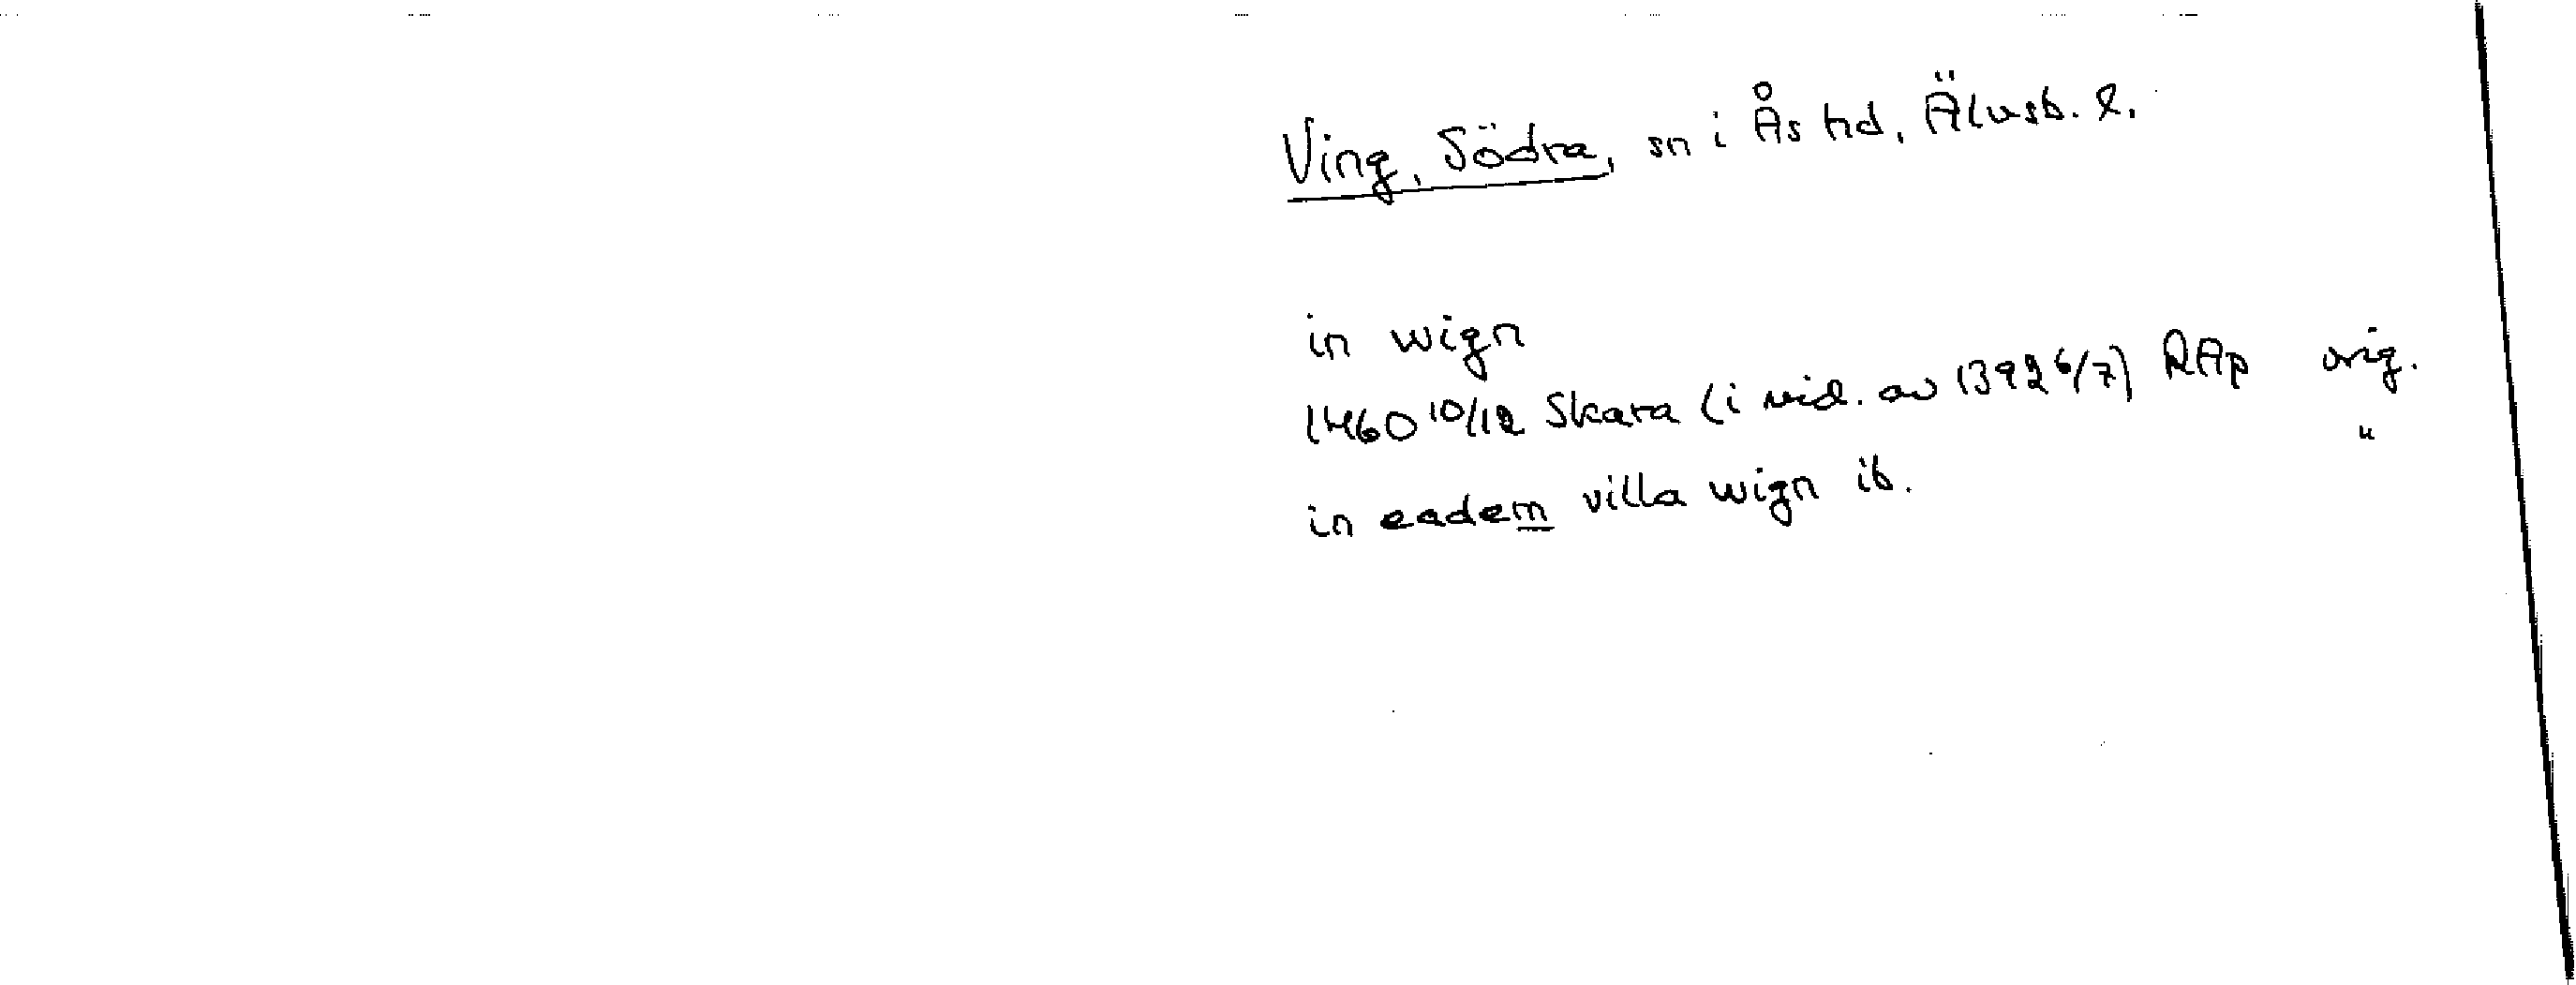 Ving, Södra, sn i Ås hd, Älvsb. l.
in wign
1460 10/12 Skara (i vid. av 1392 6/7) RAp orig.
in eadem villa wign ib. "